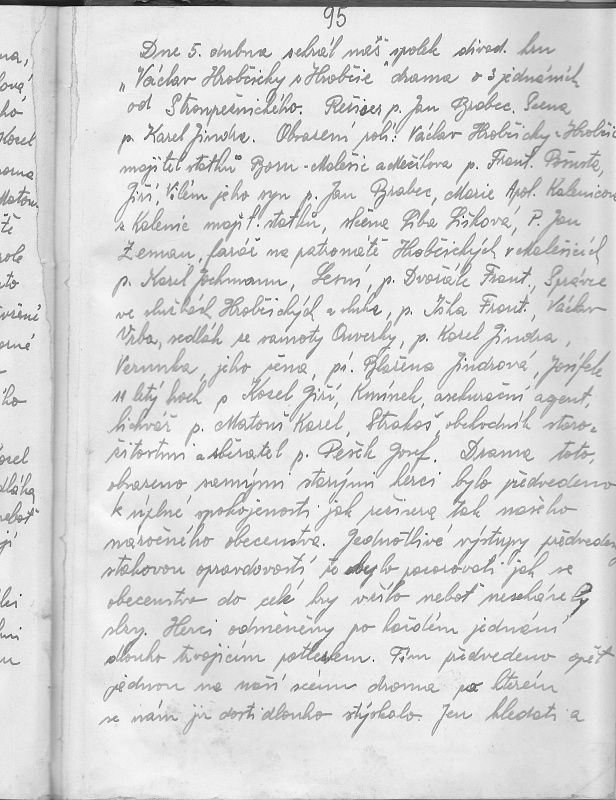 95
Dne 5. dubna sehrál náš spolek divad. hru
„Václav Hrobčický z Hrobčic" drama o 3 jednáních
od Stroupežnického. Režiser p. Jan Brabec, Scena
p. Karel Jindra. Obrazení rolí: Václav Hrobčický z Hrobčic
majitel statků Boru-Malešic a p. Frant.
Jiří, Vilém jeho syn p. Jan Brabec, Marie Apol. Kalenicová
z Kalenic majit. statků, slečna Liba Lišková, P. Jan
Zeman, farář na patronátě Hrobčických v Malešicích
p. Karel Jochmann, Lesní, p. Dvořák Frant., Správce
ve službách Hrobčických a sluha, p. Frant., Václav
Vrba, sedlák se samoty p. Karel Jindra,
Verunka, jeho žena, pí. Blažena Jindrová, Josífek
11 letý hoch p Kozel Jiří, Kmínek, asekurační agent,
lichvář p. Matouš Karel, Strakoš obchodník staro-
žitostmi a sběratel p. Pešík Josef. Drama toto,
obrazeno samými starými herci bylo předvedeno
k úplné spokojenosti jak režisera tak našeho
náročného obecenstva. Jednotlivé výstupy předvedeny
s takovou opravdovostí, že bylo pozorovati jak se
obecenstvo do celé hry vžilo neboť nescházely
slzy. Herci odměněny po každém jednání
dlouho trvajícím potleskem. Tím předvedeno opět
jednou na naší scénu drama po kterém
se nám již dosti dlouho stýskalo. Jen hledati a